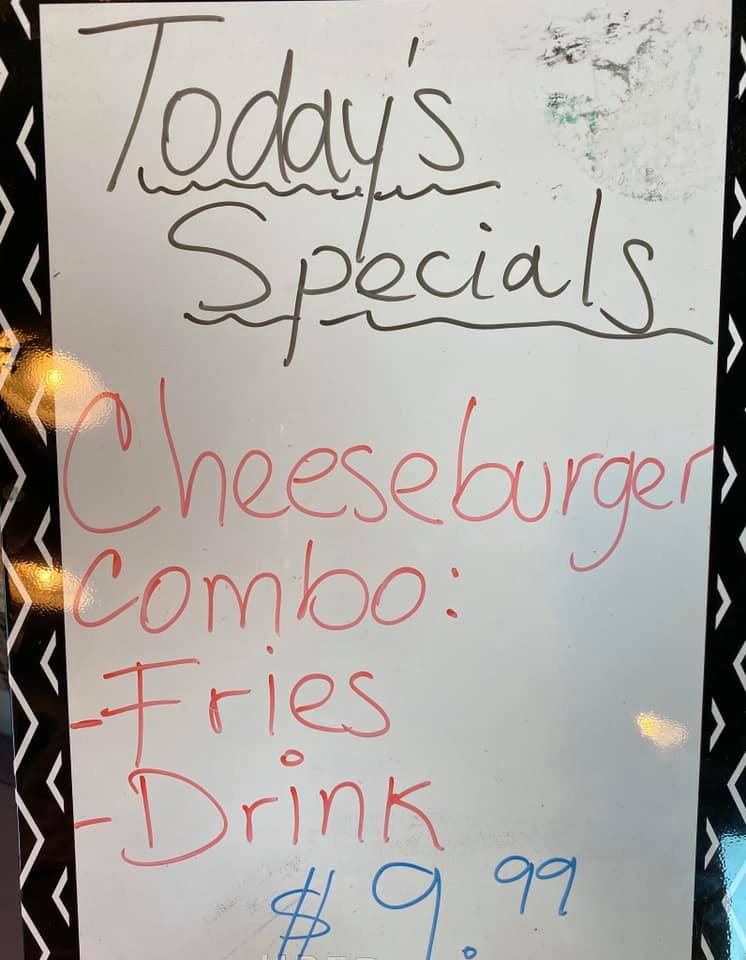 Today's
Specials
Cheeseburger
Combo:
-Fries
-Drink
$9.99